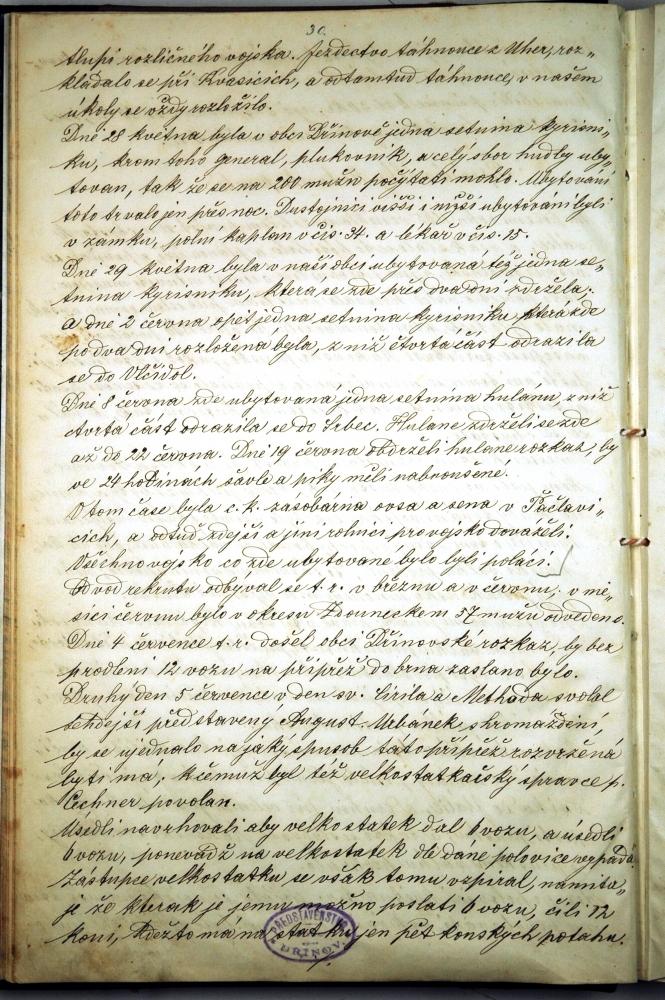 30.
tlupi rozličného vojska. Jezdectvo táhnouce z Uher, roz„
kládalo se při Kvasicích, a odtamtud táhnouce, v našem
úkoly se vždy rozložilo.
Dne 28 května byla v obci Dřínově jedna setnina kyrisni„
ku, krom toho general, plukovník, a celý sbor hudby uby„
tovan, tak že se na 200 mužu počýtati mohlo. Ubytovaní
toto trvalo jen přes noc. Dustojníci višší i nižší ubytováni byli
v zámku, polní kaplan v čís. 34. a lékař v čís. 15.
Dne 29 května byla v naší obci ubytovaná též jedna se„
tnina kyrisniku, která se zde přes dva dni zdržela.
A dne 2 června opět jedna setnina kyrisniku, která zde
po dva dni rozložena byla, z níž čtvrtá část odrazila
se do Vlčídol.
Dne 8 června zde ubytovaná jedna setnina hulánu, z níž
čtvrta část odrazila se do Srbec. Hulane zdrželi se zde
až do 22 června. Dne 19 června obdrželi hulane rozkaz, by
ve 24 hodinách šavle a piky měli nabroušené.
V tom čase byla c. k. zásobárna ovsa a sena v Pačlavi„
cích, a odtuď zdejší a jiní rolníci pro vojsko dováželi.
Všechno vojsko co zde ubytované bylo byli poláci.
Odvod rekrutu odbýval se t. r. v březnu a v červnu, v mě„
síci červnu bylo v okresu Zdouneckem 57 mužu odvedeno.
Dne 4 července t. r. došel obci Dřínovské rozkaz, by bez
prodlení 12 vozu na přípřež do brna zaslano bylo.
Druhy den 5 července v den sv. Cirila a Methoda svolal
tehdejší představený August Urbanek shromaždění,
by se ujednalo na jaký spusob tato přípřež rozvržená
býti má, k čemuž byl též velkostatkářsky spravce p.
Lechner povolan.
Usedlí navrhovali aby velkostatek dal 6 vozu, a úsedlí
6 vozu, ponevadž na velkostatek dle dáně polovice vypadá.
Zástupce velkostatku se však tomu vzpíral, namita„
je že kterak je jemu možno poslati 6 vozu, čili 12
koní, kdežto má na statku jen pět konských potahu.
PŘEDSTAVENSTVO
DŘÍNOV.